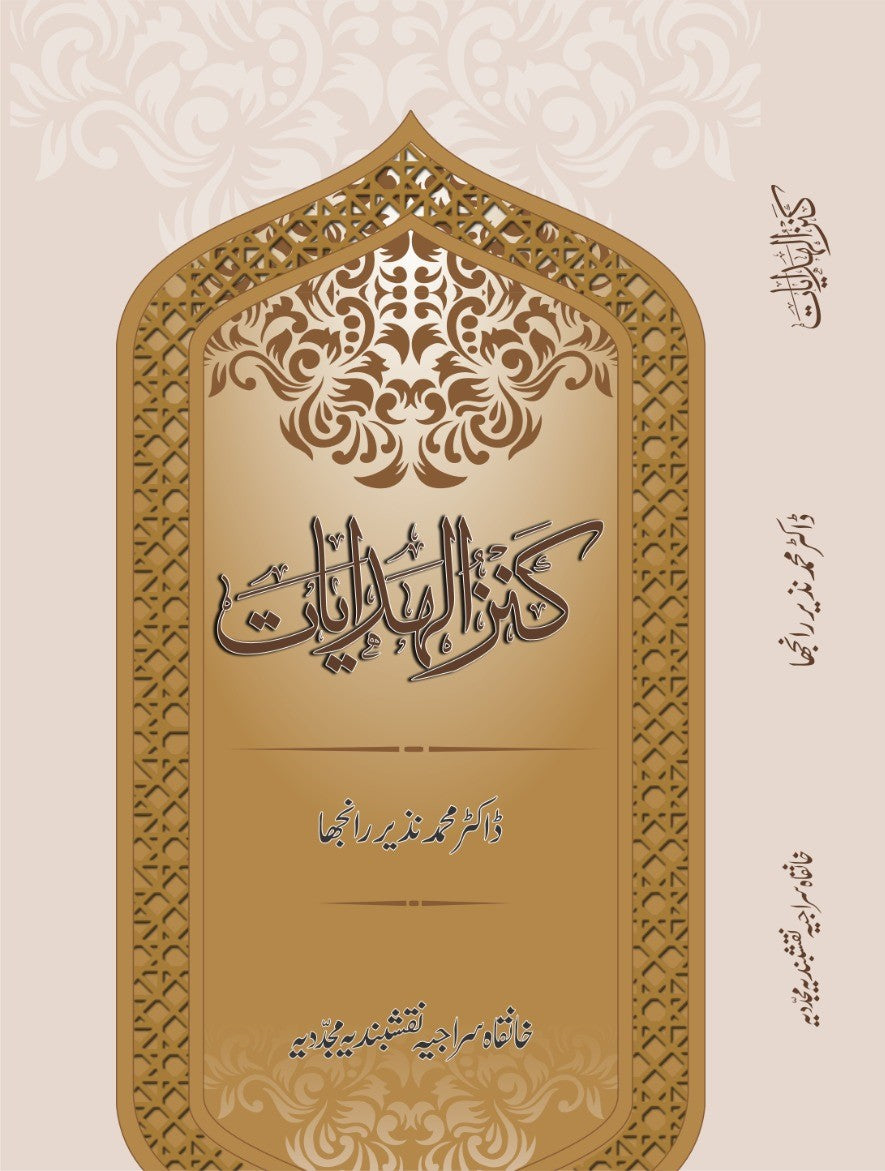 کنز الہدایات
ڈاکٹر محمد نذیر رانجھا
خانقاہ سراجیہ نقشبندیہ مجدّدیہ
کنز الہدایات
ڈاکٹر محمد نذیر رانجھا
خانقاہ سراجیہ نقشبندیہ مجدّدیہ